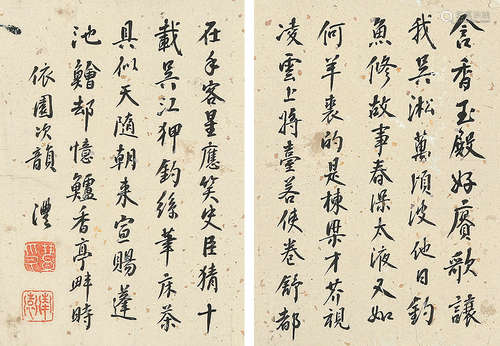 含香玉殿好賡歌讓
我吳淞萬頃波他日釣
魚修故事春深太液又如
何羊裘的是棟梁才芥視
凌雲上將臺若使卷舒都
在手客星應笑史臣猜十
載吳江狎釣絲筆床茶
具似天隨朝來宣賜蓬
池鱠却憶鱸香亭畔時
依園次韻 澧